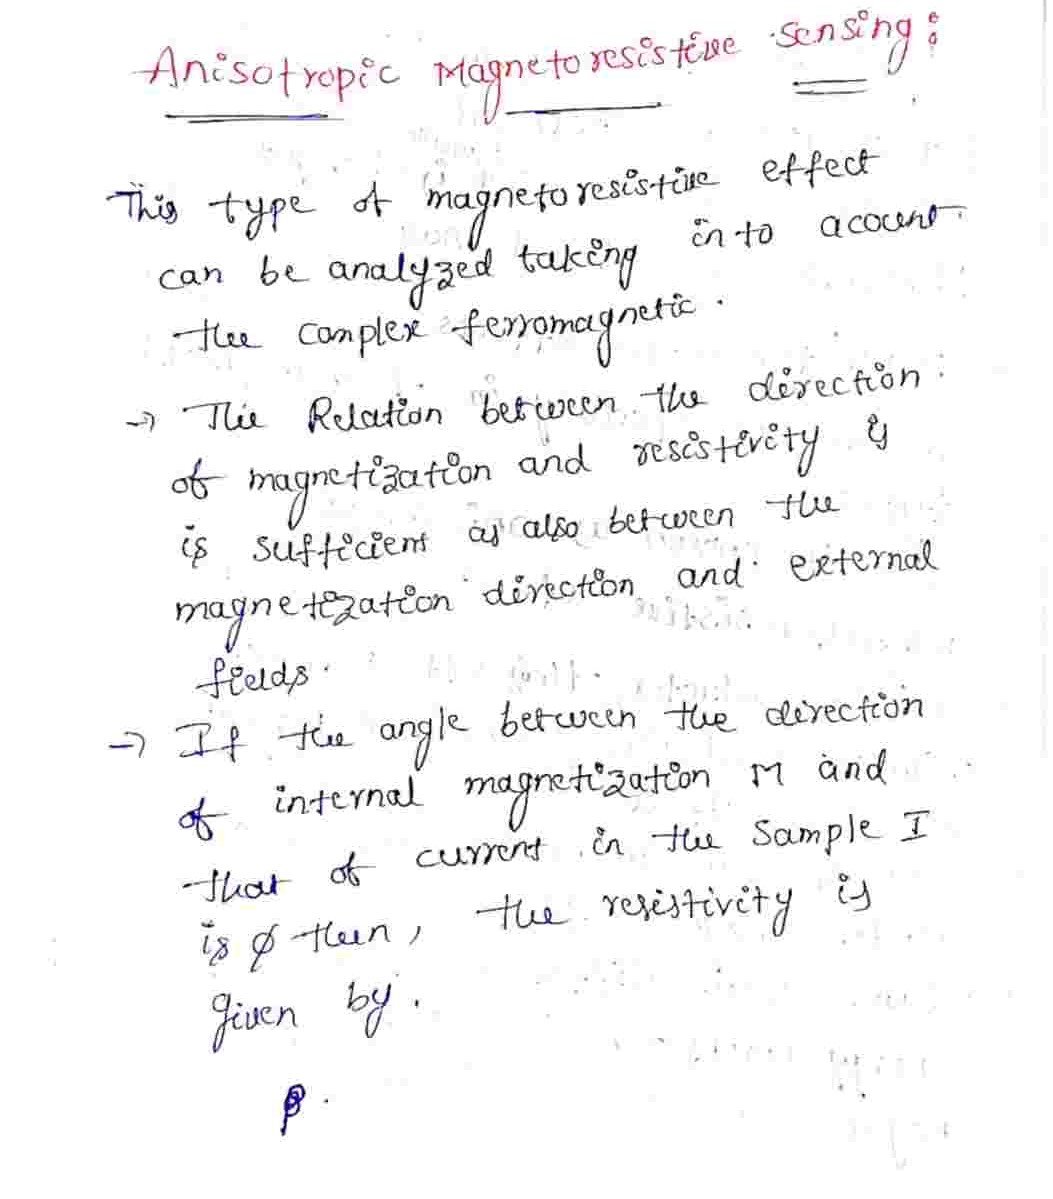 Anisotropic Magnetoresistive Sensing:
This type of magnetoresistive effect
can be analyzed taking in to acount
the complex ferromagnetic.
→ The Relation between the direction
of magnetization and resistivity is
is sufficient as also between the
magnetization direction and external
fields.
→ If the angle between the direction
of internal magnetization M and
that of current in the Sample I
is φ then, the resistivity is
given by.